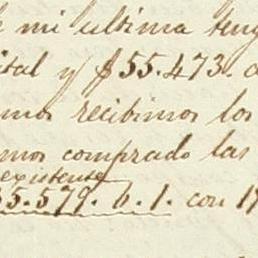 mi ultima
y $55.473.
recibimos los
comprado las
existente
5.579. 6. 1. con 1